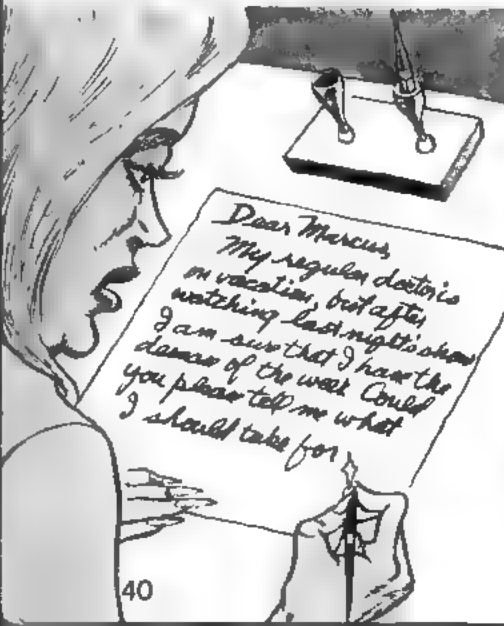 Dear Marcus,
My regular doctor is
on vacation, but after
watching last night's show
I am sure that I have the
disease of the week Could
you please tell me what
I should take for
40